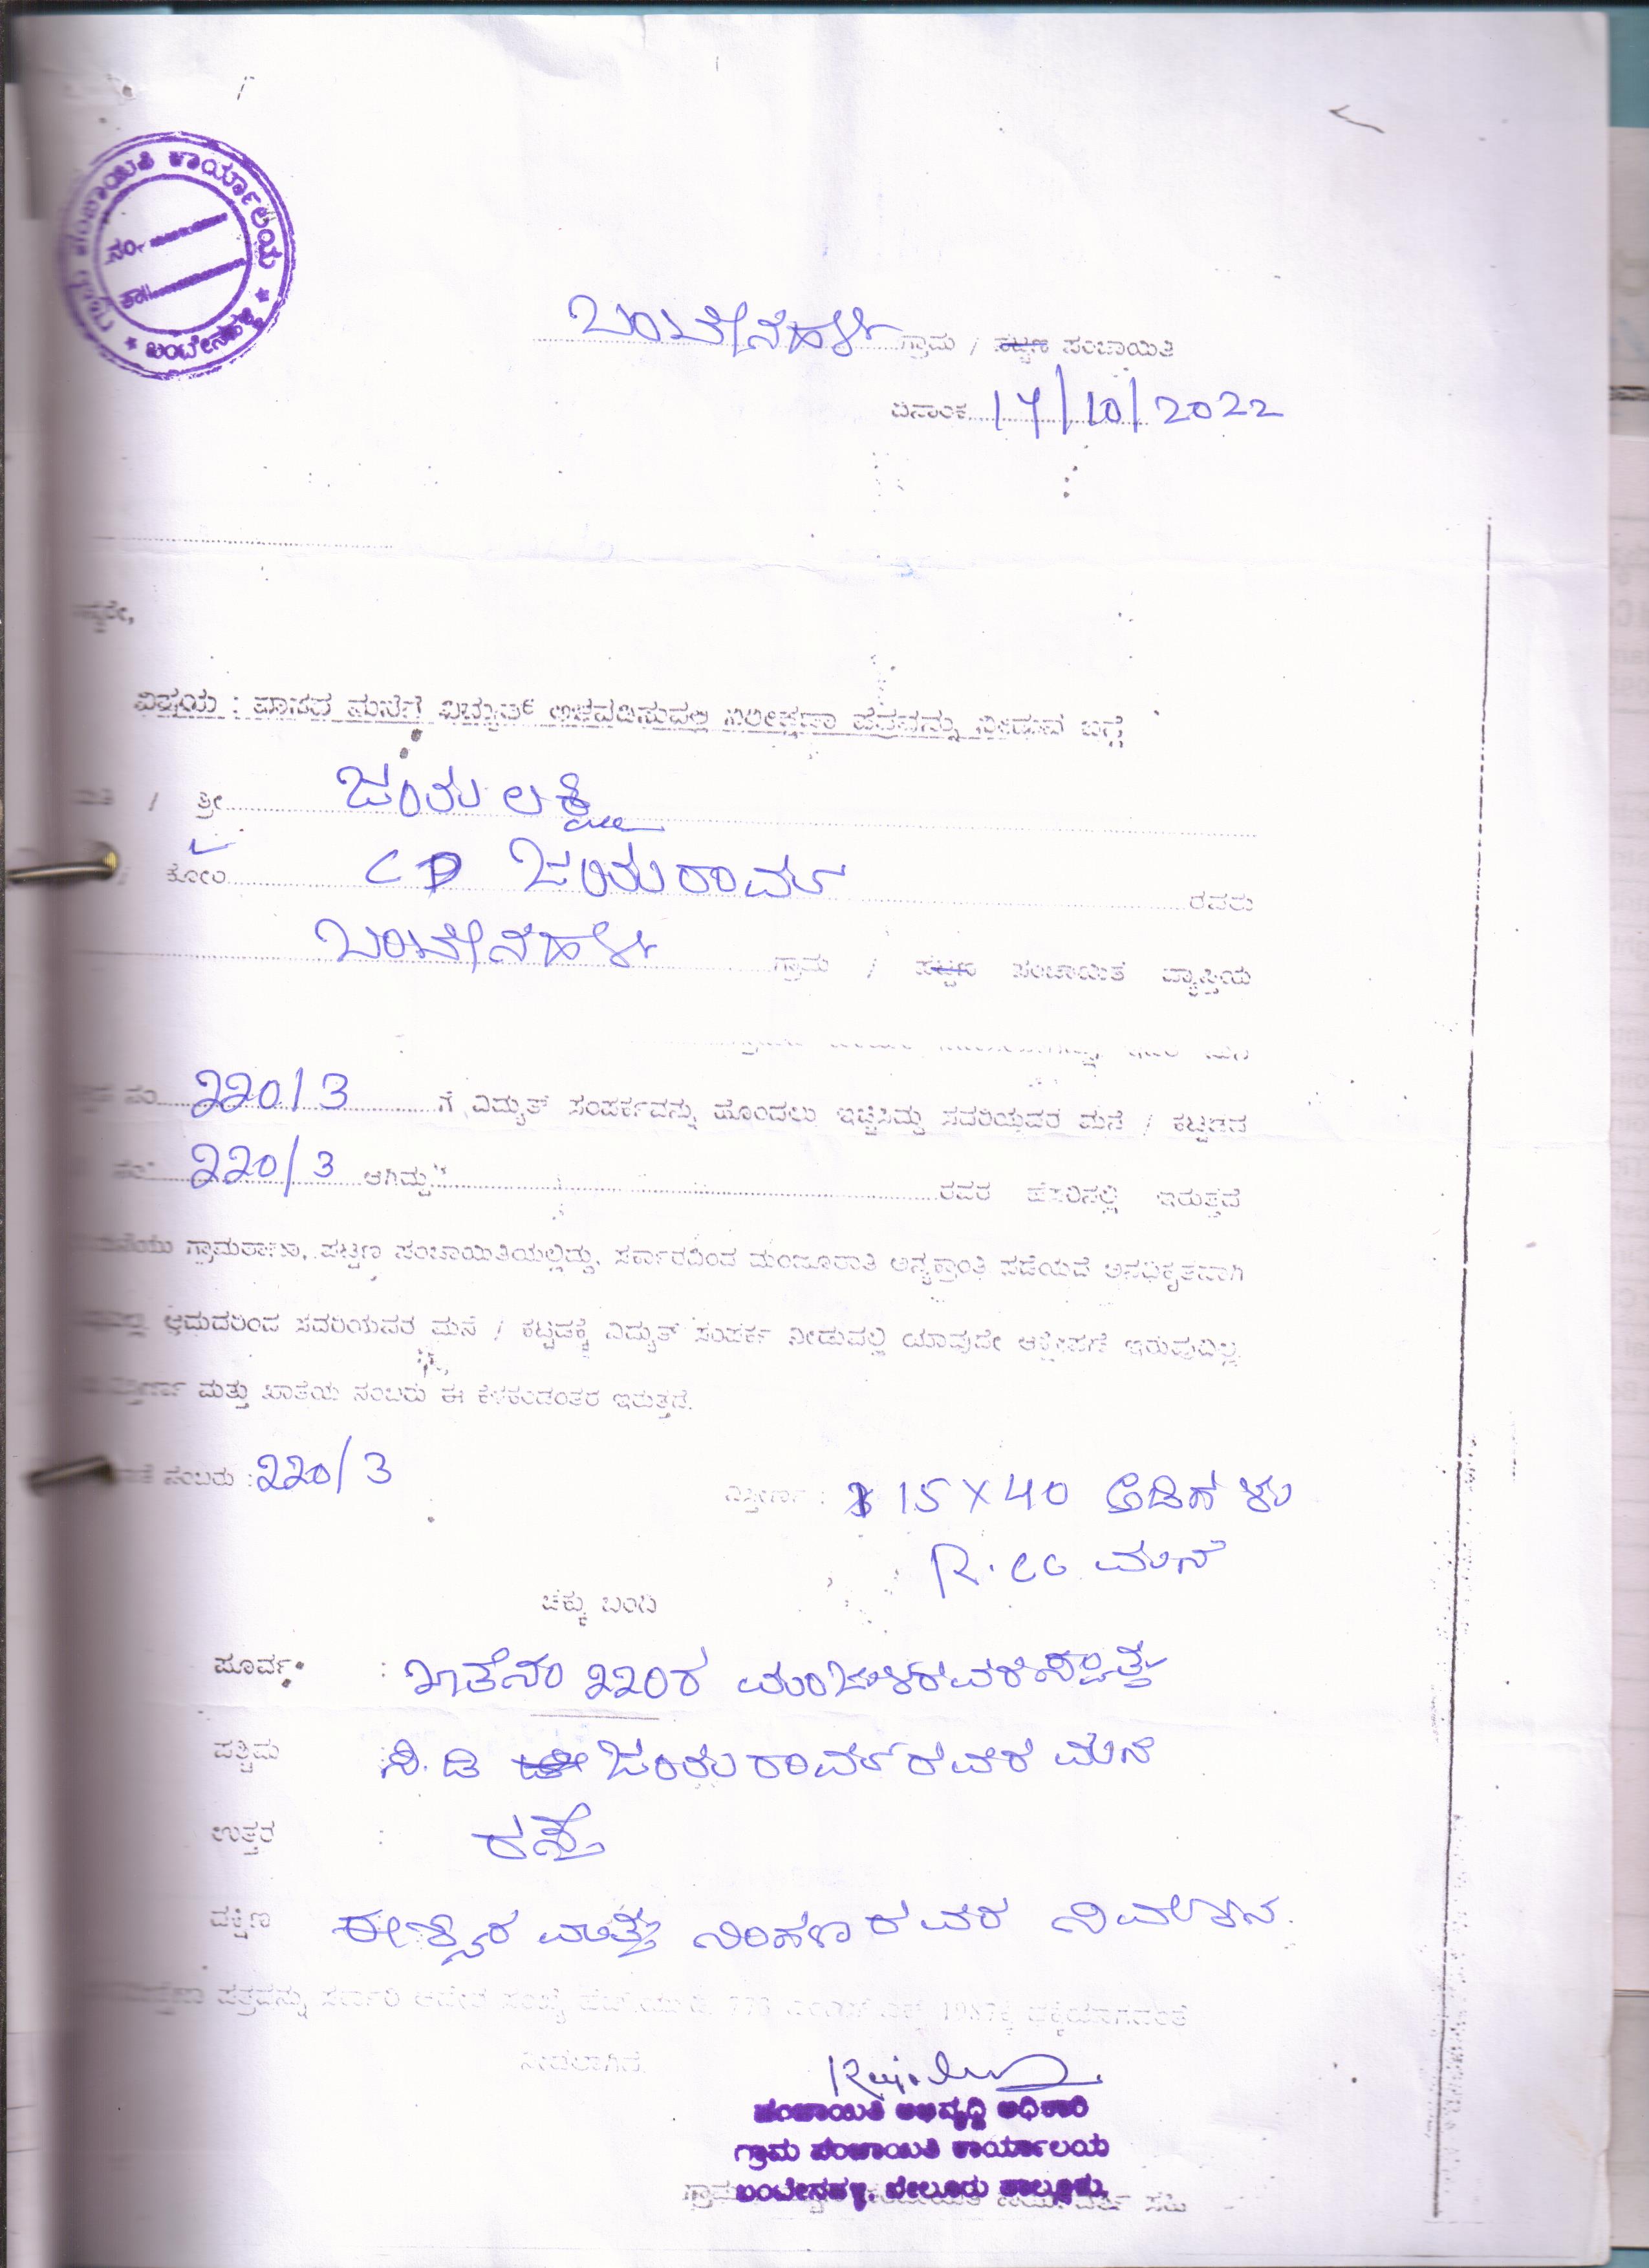 ಗ್ರಾಮ ಪಂಚಾಯಿತಿ ಕಾರ್ಯಾಲಯ
ನಂ.
ತಾ||
* ಬಂಟೇನಹಳ್ಳಿ *
ಬಂಟೇನಹಳ್ಳಿ ಗ್ರಾಮ / ಪಟ್ಟಣ ಪಂಚಾಯಿತಿ
ದಿನಾಂಕ 17/10/2022
ವಿಷಯ : ವಾಸದ ಮನೆಗೆ ವಿದ್ಯುತ್ ಅಳವಡಿಸುವಲ್ಲಿ ನಿರೀಕ್ಷಣಾ ಪತ್ರವನ್ನು ನೀಡುವ ಬಗ್ಗೆ
/ ಶ್ರೀ ಜಯಲಕ್ಷ್ಮಿ
ಕೋಂ CD ಜಯರಾಮ್ ರವರು
ಬಂಟೇನಹಳ್ಳಿ ಗ್ರಾಮ / ಪಟ್ಟಣ ಪಂಚಾಯಿತಿ ವ್ಯಾಪ್ತಿಯ
ನಂ 220/3 ಗೆ ವಿದ್ಯುತ್ ಸಂಪರ್ಕವನ್ನು ಹೊಂದಲು ಇಚ್ಛಿಸಿದ್ದು ಸದರಿಯವರ ಮನೆ / ಕಟ್ಟಡದ
220/3 ಆಗಿದ್ದು ರವರ ಹೆಸರಿನಲ್ಲಿ ಇರುತ್ತದೆ
ಮನೆಯು ಗ್ರಾಮಠಾಣಾ, ಪಟ್ಟಣ ಪಂಚಾಯಿತಿಯಲ್ಲಿದ್ದು, ಸರ್ಕಾರದಿಂದ ಮಂಜೂರಾತಿ ಅನ್ಯಕ್ರಾಂತಿ ಪಡೆಯದೆ ಅನಧಿಕೃತವಾಗಿ
ಆದುದರಿಂದ ಸದರಿಯವರ ಮನೆ / ಕಟ್ಟಡಕ್ಕೆ ವಿದ್ಯುತ್ ಸಂಪರ್ಕ ನೀಡುವಲ್ಲಿ ಯಾವುದೇ ಆಕ್ಷೇಪಣೆ ಇರುವುದಿಲ್ಲ
ಮತ್ತು ಖಾತೆಯ ನಂಬರು ಈ ಕೆಳಕಂಡಂತರ ಇರುತ್ತದೆ.
ನಂಬರು : 220/3
ವಿಸ್ತೀರ್ಣ : 15 X 40 ಅಡಿಗಳು
R.CC ಮನೆ
ಚಕ್ಕು ಬಂದಿ
ಪೂರ್ವ : ಖಾತೆನಂ 220ರ ಮಂಜುಳರವರ ಸ್ವತ್ತು
ಪಶ್ಚಿಮ : ಸಿ.ಡಿ ಜಯರಾಮ್ ರವರ ಮನೆ
ಉತ್ತರ : ರಸ್ತೆ
ದಕ್ಷಿಣ ಈಶ್ವರ ಮತ್ತು ರವರ ನಿವೇಶನ.
ಪತ್ರವನ್ನು ಸರ್ಕಾರಿ ಆದೇಶ ಸಂಖ್ಯೆ
ನೀಡಲಾಗಿದೆ.
ಪಂಚಾಯಿತಿ ಅಭಿವೃದ್ಧಿ ಅಧಿಕಾರಿ
ಗ್ರಾಮ ಪಂಚಾಯಿತಿ ಕಾರ್ಯಾಲಯ
ಬಂಟೇನಹಳ್ಳಿ, ಬೇಲೂರು ತಾಲ್ಲೂಕು